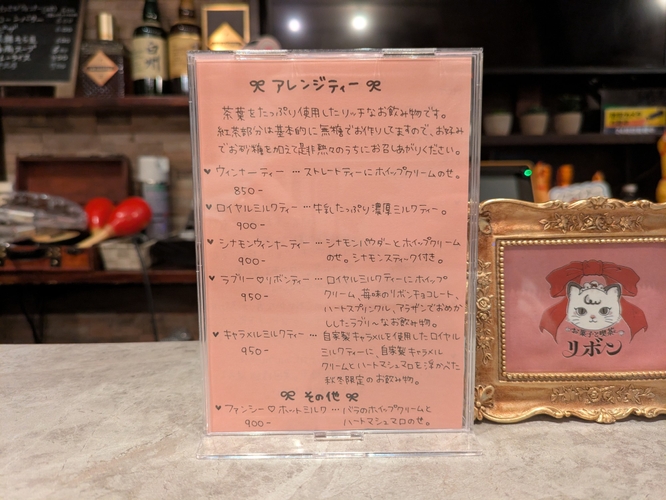 アレンジティー
茶葉をたっぷり使用したリッチなお飲み物です。
紅茶部分は基本的に無糖でお作りしてますので、お好み
でお砂糖を加えて是非熱々のうちにお召しあがりください。
♥ ウィンナーティー … ストレートティーにホイップクリームのせ。
850-
♥ ロイヤルミルクティー … 牛乳たっぷり濃厚ミルクティー。
900-
♥ シナモンウィンナーティー … シナモンパウダーとホイップクリーム
900- のせ。シナモンスティーク付き。
♥ ラブリー♡リボンティー … ロイヤルミルクティーにホイップ
950- クリーム、苺味のリボンチョコレート、
ハートスプリンクル、アラザンでおめか
ししたラブリ〜なお飲み物。
♥ キャラメルミルクティー … 自家製キャラメルを使用したロイヤル
950- ミルクティーに、自家製キャラメル
クリームとハートマシュマロを浮かべた
秋冬限定のお飲み物。
その他
♥ ファンシー♡ホットミルク … バラのホイップクリームと
900- ハートマシュマロのせ。
お菓子と喫茶
リボン
白州